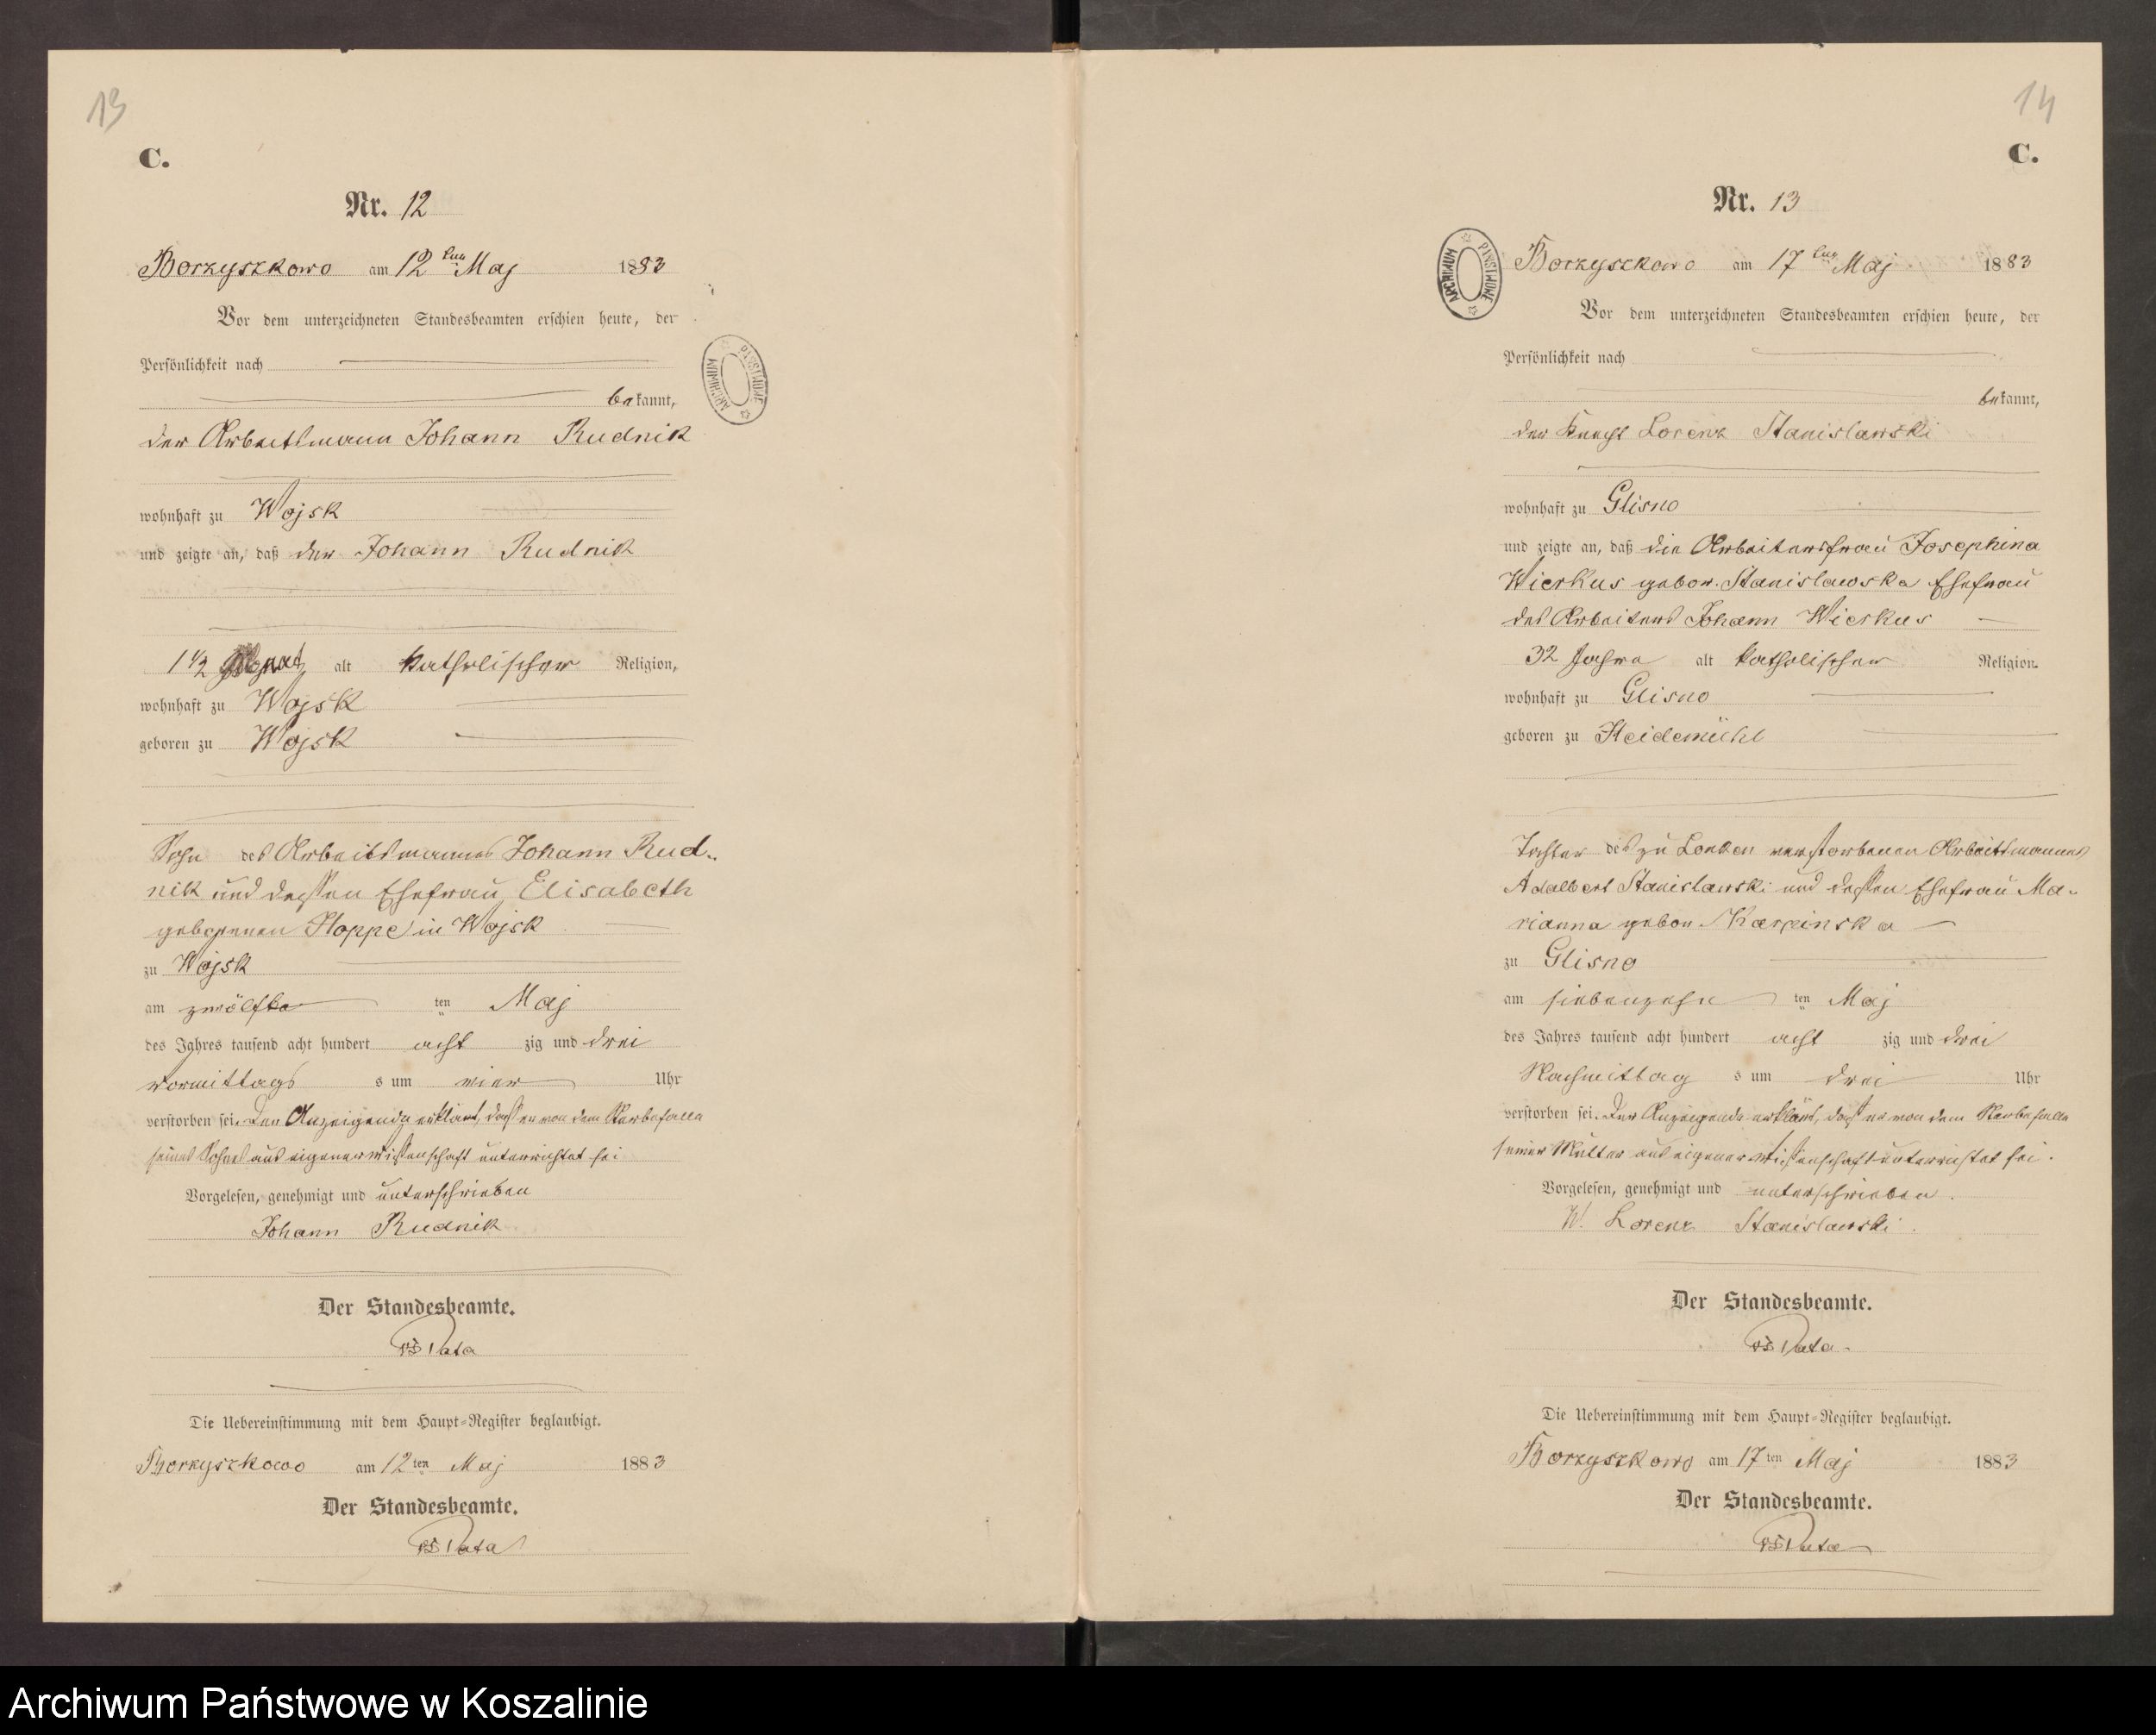 13
C.
Nr. 12
Borzyszkowo am 12ten Maj 1883
Vor dem unterzeichneten Standesbeamten erschien heute, der
Persönlichkeit nach
bekannt,
der Arbeitsmann Johann Rudnik
wohnhaft zu Wojsk
und zeigte an, daß der Johann Rudnik
1 1/2 Monat alt katholischer Religion,
wohnhaft zu Wojsk
geboren zu Wojsk
Sohn des Arbeitsmannes Johann Rud-
nik und dessen Ehefrau Elisabeth
geborenen Hoppe in Wojsk
zu Wojsk
am zwölften ten Maj
des Jahres tausend acht hundert acht zig und drei
vormittags s um vier Uhr
verstorben sei. Der Anzeigende erklärt, dass er von dem Sterbefalle
seines Sohnes aus eigener Wissenschaft unterrichtet sei
Vorgelesen, genehmigt und unterschrieben
Johann Rudnik
Der Standesbeamte.
Pata
Die Uebereinstimmung mit dem Haupt-Register beglaubigt.
Borzyszkowo am 12ten Maj 1883
Der Standesbeamte.
Pata
14
C.
Nr. 13
ARCHIWUM PAŃSTWOWE
Borzyszkowo am 17ten Maj 1883
Vor dem unterzeichneten Standesbeamten erschien heute, der
Persönlichkeit nach
bekannt,
der Knecht Lorenz Stanislawski
wohnhaft zu Glisno
und zeigte an, daß die Arbeitersfrau Josephina
Wierkus gebor. Stanislawska Ehefrau
des Arbeiters Johann Wierkus
32 Jahre alt katholischer Religion.
wohnhaft zu Glisno
geboren zu Heidemühl
Tochter des zu Lonken verstorbenen Arbeitsmannes
Adalbert Stanislawski und dessen Ehefrau Ma-
rianna gebor Karpinska
zu Glisno
am siebenzehn ten Maj
des Jahres tausend acht hundert acht zig und drei
Nachmittag s um drei Uhr
verstorben sei. Der Anzeigende erklärt, dass er von dem Sterbefalle
seiner Mutter aus eigener Wissenschaft unterrichtet sei.
Vorgelesen, genehmigt und unterschrieben.
W. Lorenz Stanislawski.
Der Standesbeamte.
Pata
Die Uebereinstimmung mit dem Haupt-Register beglaubigt.
Borzyszkowo am 17ten Maj 1883
Der Standesbeamte.
Pata
Archiwum Państwowe w Koszalinie